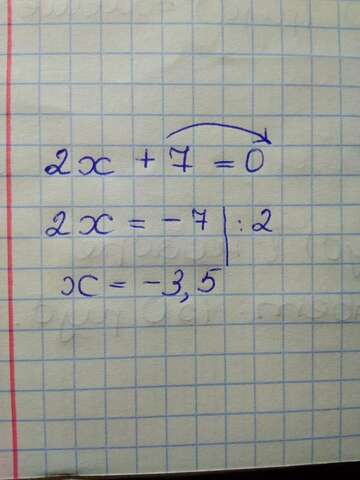 2x + 7 = 0
2x = -7 | : 2
x = -3,5